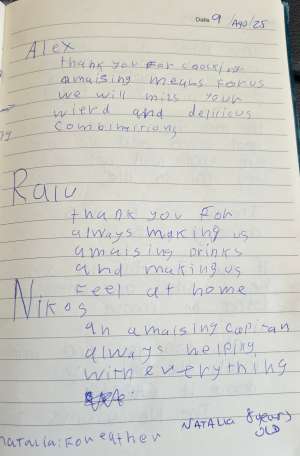 Date 9 / Ago / 25
Alex
thank you for coocking
amaising meals for us
we will miss your
wierd and delicious
combinitions
Raiu
thank you for
always making us
amaising drinks
and making us
feel at home
Nikos
an amaising captan
always helping
with everything
NATALIA 8 years
OLD
natalia: for eather